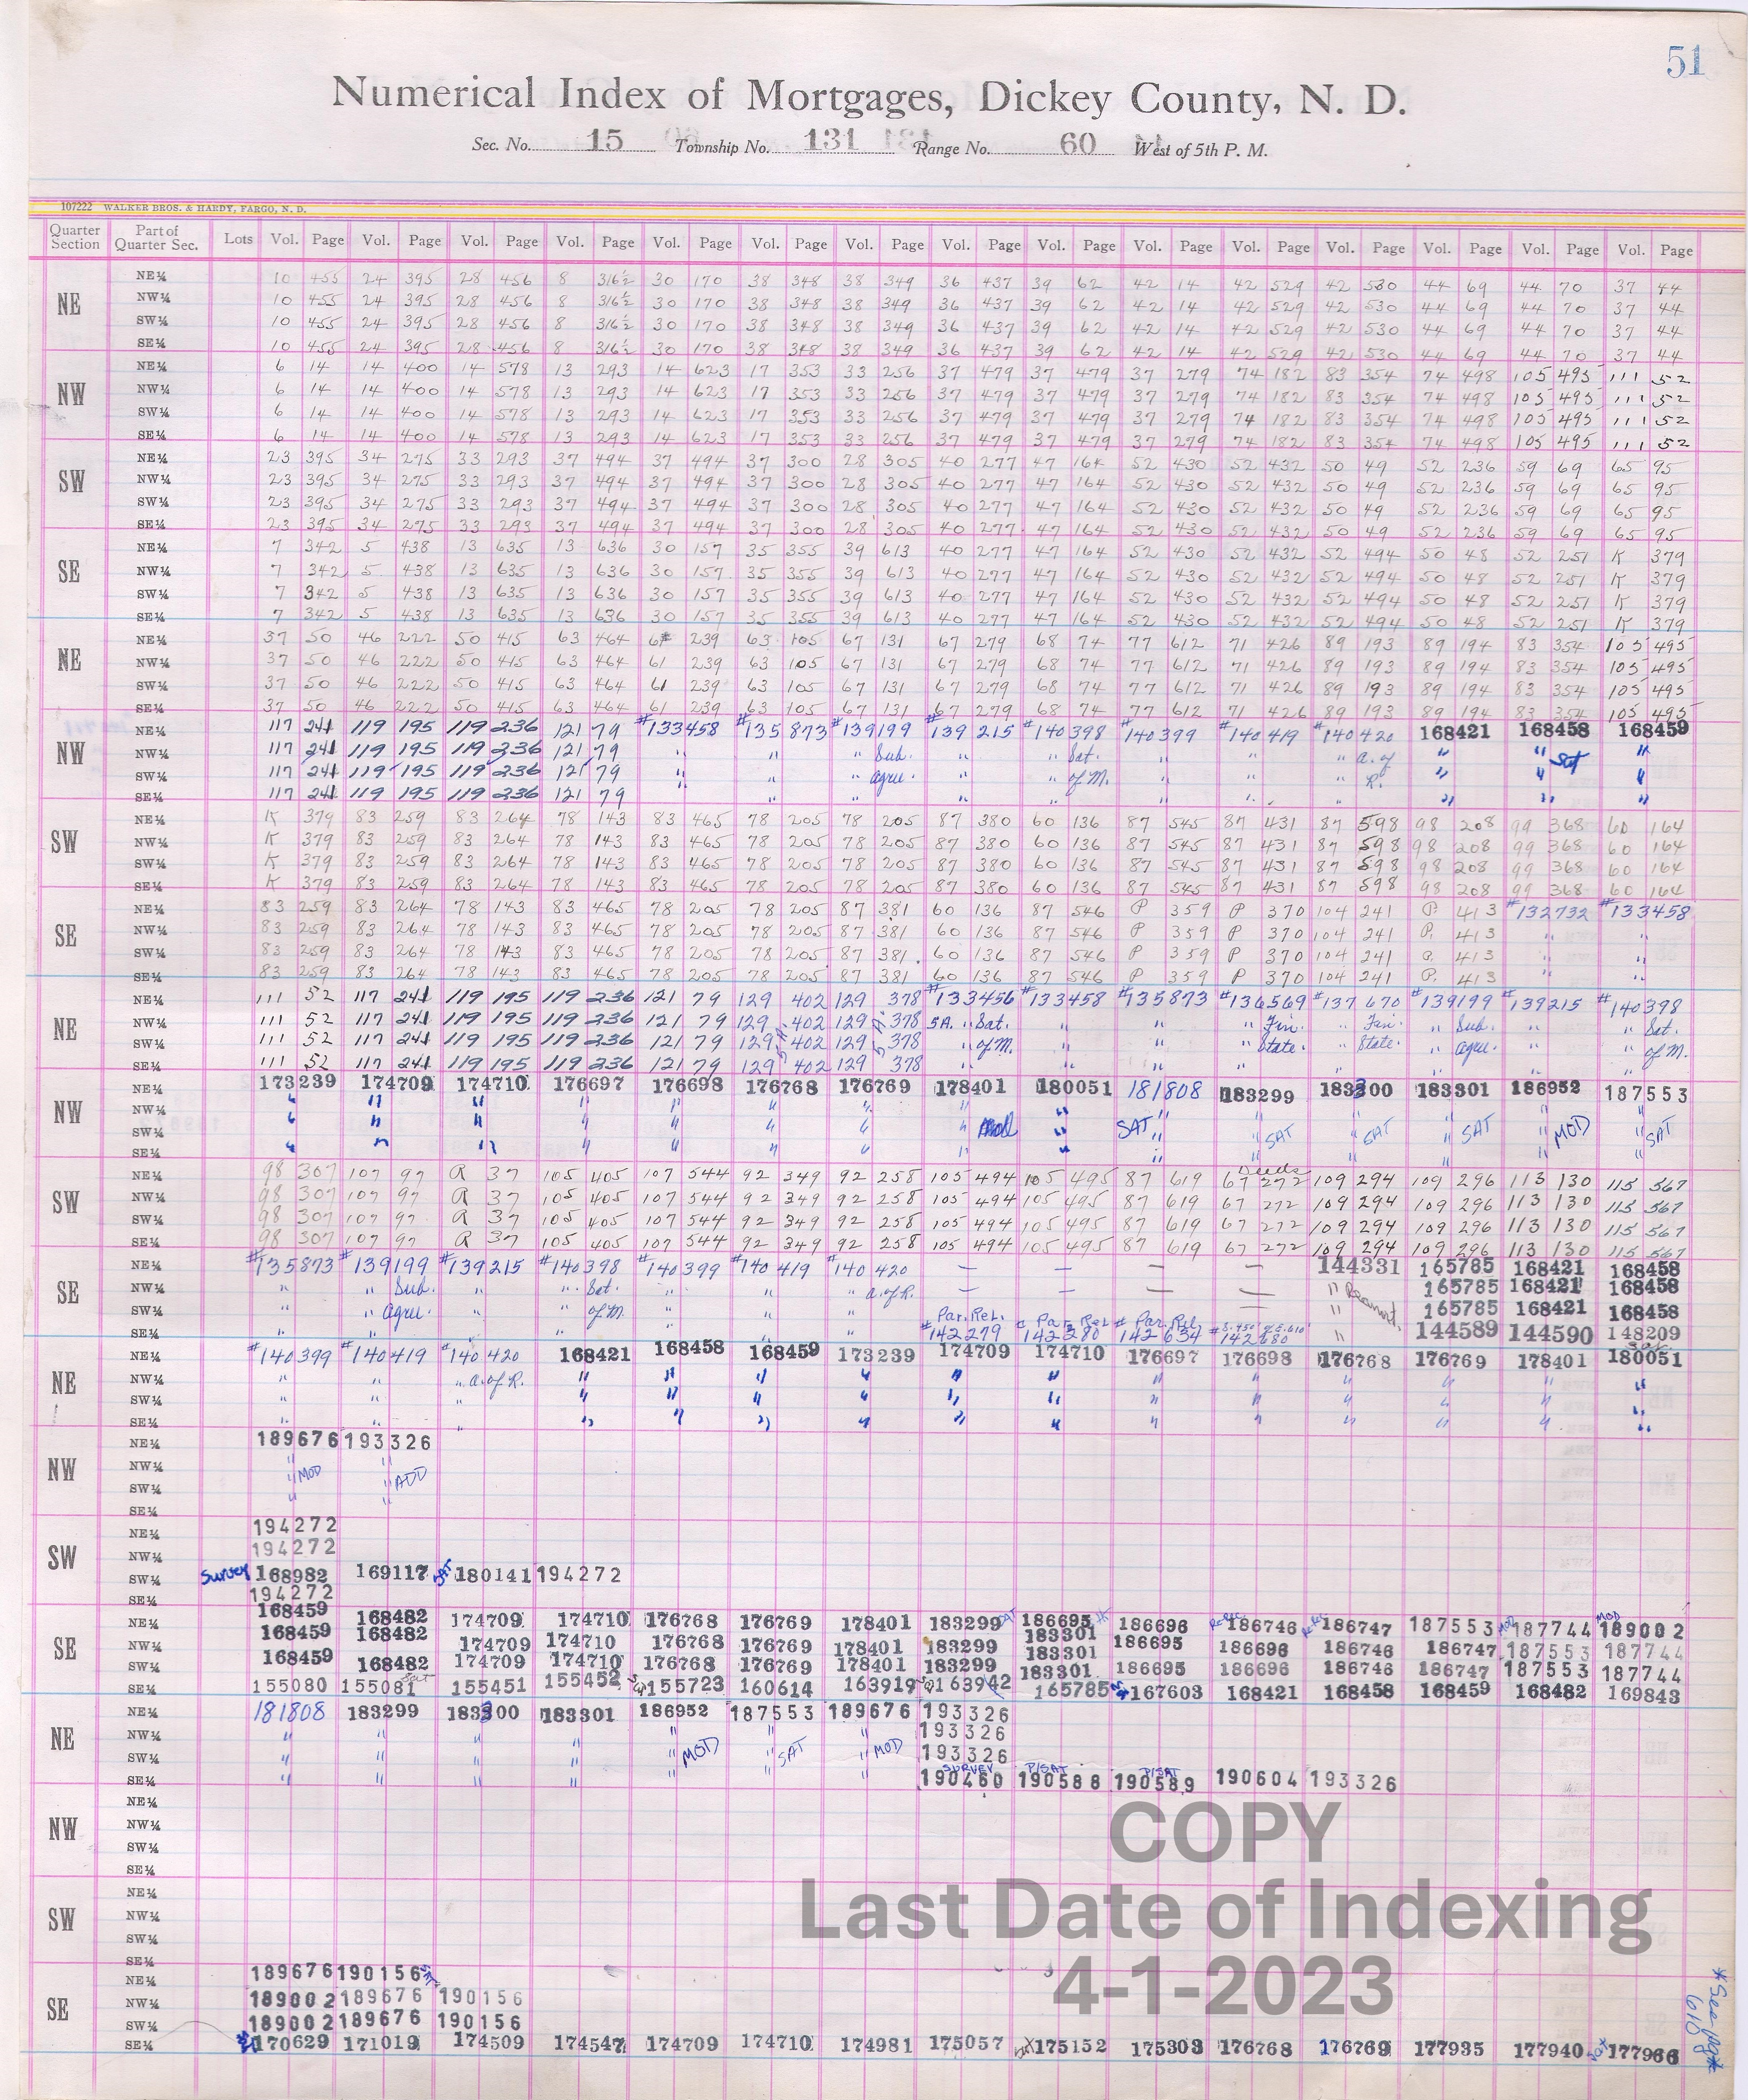 51
Numerical Index of Mortgages, Dickey County, N. D.
Sec. No. 15 Township No. 131 Range No. 60 West of 5th P. M.
107222 WALKER BROS. & HARDY, FARGO, N. D.
Quarter Section Part of Quarter Sec. Lots Vol. Page Vol. Page Vol. Page Vol. Page Vol. Page Vol. Page Vol. Page Vol. Page Vol. Page Vol. Page Vol. Page Vol. Page Vol. Page Vol. Page Vol. Page
NE NE¼ 10 455 24 395 28 456 8 316½ 30 170 38 348 38 349 36 437 39 62 42 14 42 529 42 530 44 69 44 70 37 44
NW¼ 10 455 24 395 28 456 8 316½ 30 170 38 348 38 349 36 437 39 62 42 14 42 529 42 530 44 69 44 70 37 44
SW¼ 10 455 24 395 28 456 8 316½ 30 170 38 348 38 349 36 437 39 62 42 14 42 529 42 530 44 69 44 70 37 44
SE¼ 10 455 24 395 28 456 8 316½ 30 170 38 348 38 349 36 437 39 62 42 14 42 529 42 530 44 69 44 70 37 44
NW NE¼ 6 14 14 400 14 578 13 293 14 623 17 353 33 256 37 479 37 479 37 279 74 182 83 354 74 498 105 495 111 52
NW¼ 6 14 14 400 14 578 13 293 14 623 17 353 33 256 37 479 37 479 37 279 74 182 83 354 74 498 105 495 111 52
SW¼ 6 14 14 400 14 578 13 293 14 623 17 353 33 256 37 479 37 479 37 279 74 182 83 354 74 498 105 495 111 52
SE¼ 6 14 14 400 14 578 13 293 14 623 17 353 33 256 37 479 37 479 37 279 74 182 83 354 74 498 105 495 111 52
SW NE¼ 23 395 34 275 33 293 37 494 37 494 37 300 28 305 40 277 47 164 52 430 52 432 50 49 52 236 59 69 65 95
NW¼ 23 395 34 275 33 293 37 494 37 494 37 300 28 305 40 277 47 164 52 430 52 432 50 49 52 236 59 69 65 95
SW¼ 23 395 34 275 33 293 37 494 37 494 37 300 28 305 40 277 47 164 52 430 52 432 50 49 52 236 59 69 65 95
SE¼ 23 395 34 275 33 293 37 494 37 494 37 300 28 305 40 277 47 164 52 430 52 432 50 49 52 236 59 69 65 95
SE NE¼ 7 342 5 438 13 635 13 636 30 157 35 355 39 613 40 277 47 164 52 430 52 432 52 494 50 48 52 251 K 379
NW¼ 7 342 5 438 13 635 13 636 30 157 35 355 39 613 40 277 47 164 52 430 52 432 52 494 50 48 52 251 K 379
SW¼ 7 342 5 438 13 635 13 636 30 157 35 355 39 613 40 277 47 164 52 430 52 432 52 494 50 48 52 251 K 379
SE¼ 7 342 5 438 13 635 13 636 30 157 35 355 39 613 40 277 47 164 52 430 52 432 52 494 50 48 52 251 K 379
NE NE¼ 37 50 46 222 50 415 63 464 61 239 63 105 67 131 67 279 68 74 77 612 71 426 89 193 89 194 83 354 105 495
NW¼ 37 50 46 222 50 415 63 464 61 239 63 105 67 131 67 279 68 74 77 612 71 426 89 193 89 194 83 354 105 495
SW¼ 37 50 46 222 50 415 63 464 61 239 63 105 67 131 67 279 68 74 77 612 71 426 89 193 89 194 83 354 105 495
SE¼ 37 50 46 222 50 415 63 464 61 239 63 105 67 131 67 279 68 74 77 612 71 426 89 193 89 194 83 354 105 495
NW NE¼ 117 241 119 195 119 236 121 79 #133458 #135873 #139199 #139 215 #140398 #140399 #140419 #140420 168421 168458 168459
NW¼ 117 241 119 195 119 236 121 79 " " " Sub. " " Sat. " " " a. of " " Sat "
SW¼ 117 241 119 195 119 236 121 79 " " " agree. " " of M. " " " R. " " "
SE¼ 117 241 119 195 119 236 121 79 " " " " " " " " " "
SW NE¼ K 379 83 259 83 264 78 143 83 465 78 205 78 205 87 380 60 136 87 545 87 431 87 598 98 208 99 368 60 164
NW¼ K 379 83 259 83 264 78 143 83 465 78 205 78 205 87 380 60 136 87 545 87 431 87 598 98 208 99 368 60 164
SW¼ K 379 83 259 83 264 78 143 83 465 78 205 78 205 87 380 60 136 87 545 87 431 87 598 98 208 99 368 60 164
SE¼ K 379 83 259 83 264 78 143 83 465 78 205 78 205 87 380 60 136 87 545 87 431 87 598 98 208 99 368 60 164
SE NE¼ 83 259 83 264 78 143 83 465 78 205 78 205 87 381 60 136 87 546 P 359 P 370 104 241 P. 413 #132732 #133458
NW¼ 83 259 83 264 78 143 83 465 78 205 78 205 87 381 60 136 87 546 P 359 P 370 104 241 P. 413 " "
SW¼ 83 259 83 264 78 143 83 465 78 205 78 205 87 381 60 136 87 546 P 359 P 370 104 241 P. 413 " "
SE¼ 83 259 83 264 78 143 83 465 78 205 78 205 87 381 60 136 87 546 P 359 P 370 104 241 P. 413 " "
NE NE¼ 111 52 117 241 119 195 119 236 121 79 129 402 129 378 #133456 #133458 #135873 #136569 #137670 #139199 #139215 #140398
NW¼ 111 52 117 241 119 195 119 236 121 79 129 402 129 378 SA. " Sat. " " " Fin. " Fin. " Sub. " " Sat.
SW¼ 111 52 117 241 119 195 119 236 121 79 129 402 129 378 " of M. " " " State. " State. " agree. " " of M.
SE¼ 111 52 117 241 119 195 119 236 121 79 129 402 129 378 " " " " " " " "
NW NE¼ 173239 174709 174710 176697 176698 176768 176769 178401 180051 181808 183299 183300 183301 186952 187553
NW¼ " " " " " " " " " " " " " " "
SW¼ " " " " " " " " Mod " SAT " " SAT " SAT " SAT " MOD " SAT
SE¼ " " " " " " " " " " " " " " "
SW NE¼ 98 307 107 97 R 37 105 405 107 544 92 349 92 258 105 494 105 495 87 619 Deeds 67 272 109 294 109 296 113 130 115 567
NW¼ 98 307 107 97 R 37 105 405 107 544 92 349 92 258 105 494 105 495 87 619 67 272 109 294 109 296 113 130 115 567
SW¼ 98 307 107 97 R 37 105 405 107 544 92 349 92 258 105 494 105 495 87 619 67 272 109 294 109 296 113 130 115 567
SE¼ 98 307 107 97 R 37 105 405 107 544 92 349 92 258 105 494 105 495 87 619 67 272 109 294 109 296 113 130 115 567
SE NE¼ #135873 #139199 #139215 #140398 #140399 #140419 #140420 — — — — 144331 165785 168421 168458
NW¼ " " Sub. " " Sat. " " " a. of R. — — — — " 165785 168421 168458
SW¼ " " agree. " " of M. " " " Par. Rel. Par. Rel. Par. Rel. — " 165785 168421 168458
SE¼ " " " " " " " #142279 #142280 #142634 #142680 " 144589 144590 148209
NE NE¼ #140399 #140419 #140420 168421 168458 168459 173239 174709 174710 176697 176698 176768 176769 178401 180051
NW¼ " " " a. of R. " " " " " " " " " " " "
SW¼ " " " " " " " " " " " " " " "
SE¼ " " " " " " " " " " " " " " "
NW NE¼ 189676 193326
NW¼ " "
SW¼ " MOD " ADD
SE¼ " "
SW NE¼ 194272
NW¼ 194272
SW¼ Survey 168982 169117 SAT 180141 194272
SE¼ 194272
SE NE¼ 168459 168482 174709 174710 176768 176769 178401 183299 186695 186696 186746 186747 187553 MOD 187744 MOD 189002
NW¼ 168459 168482 174709 174710 176768 176769 178401 183299 183301 186695 186696 186746 186747 187553 187744
SW¼ 168459 168482 174709 174710 176768 176769 178401 183299 183301 186695 186696 186746 186747 187553 187744
SE¼ 155080 155081 155451 155452 155723 160614 163919 163942 165785 167603 168421 168458 168459 168482 169843
NE NE¼ 181808 183299 183300 183301 186952 187553 189676 193326
NW¼ " " " " " " " 193326
SW¼ " " " " " MOD " SAT " MOD 193326
SE¼ " " " " " " " SURVEY 190460 P/SAT 190588 P/SAT 190589 190604 193326
NW NE¼
NW¼
SW¼
SE¼
SW NE¼
NW¼
SW¼
SE¼
SE NE¼ 189676 190156 SAT
NW¼ 189002 189676 190156
SW¼ 189002 189676 190156
SE¼ 170629 171019 174509 174547 174709 174710 174981 175057 175152 175303 176768 176769 177935 177940 177966
* See pg. 610
COPY
Last Date of Indexing
4-1-2023